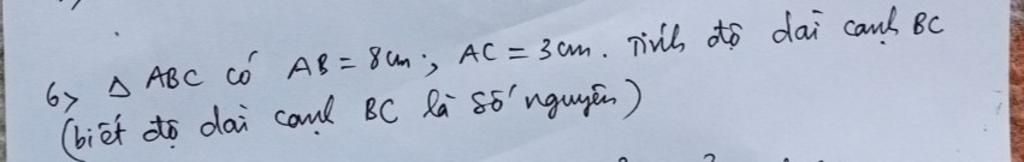 6> Δ ABC có AB = 8cm; AC = 3cm. Tính độ dài cạnh BC
(biết độ dài cạnh BC là số nguyên)